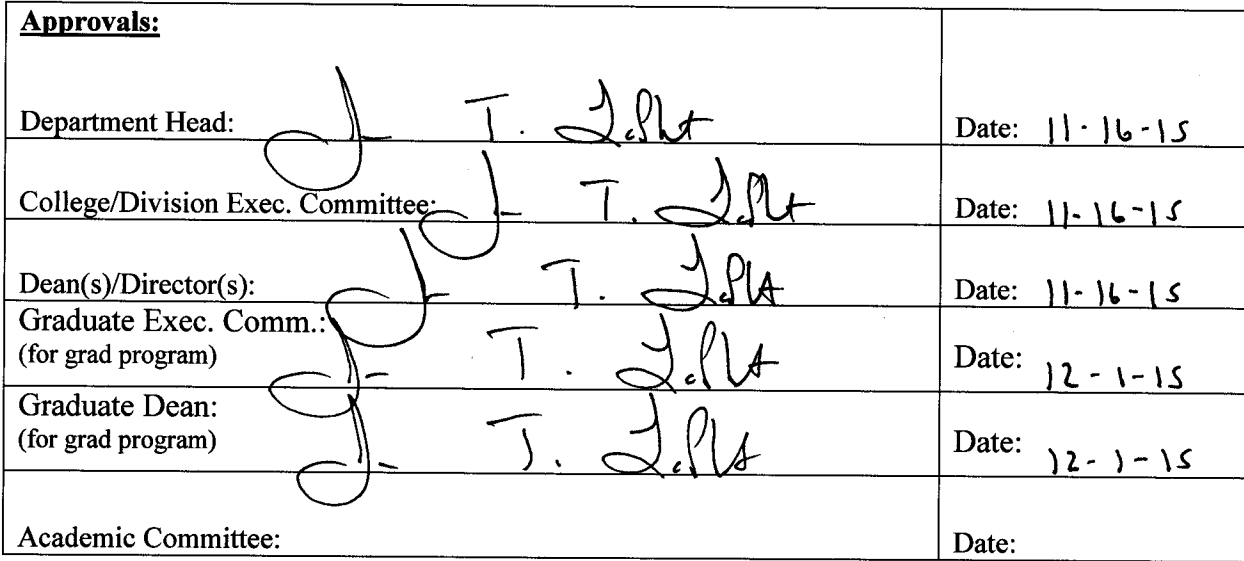 Approvals:
Department Head: J. T. Date: 11-16-15
College/Division Exec. Committee: J. T. Date: 11-16-15
Dean(s)/Director(s): J. T. Date: 11-16-15
Graduate Exec. Comm.: J. T. Date: 12-1-15
(for grad program)
Graduate Dean: J. T. Date: 12-1-15
(for grad program)
Academic Committee: Date: